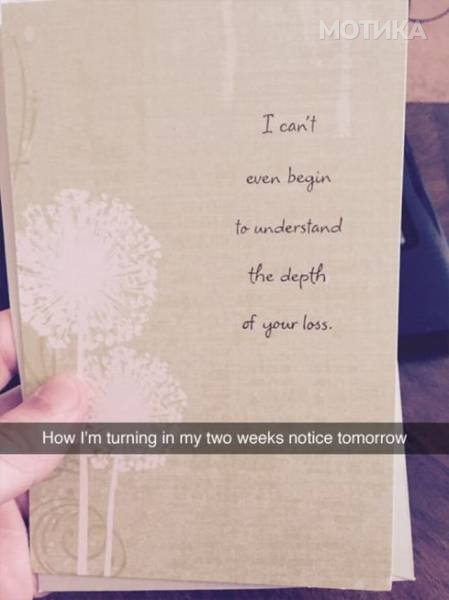 МОТИКА
I can't
even begin
to understand
the depth
of your loss.
How I'm turning in my two weeks notice tomorrow